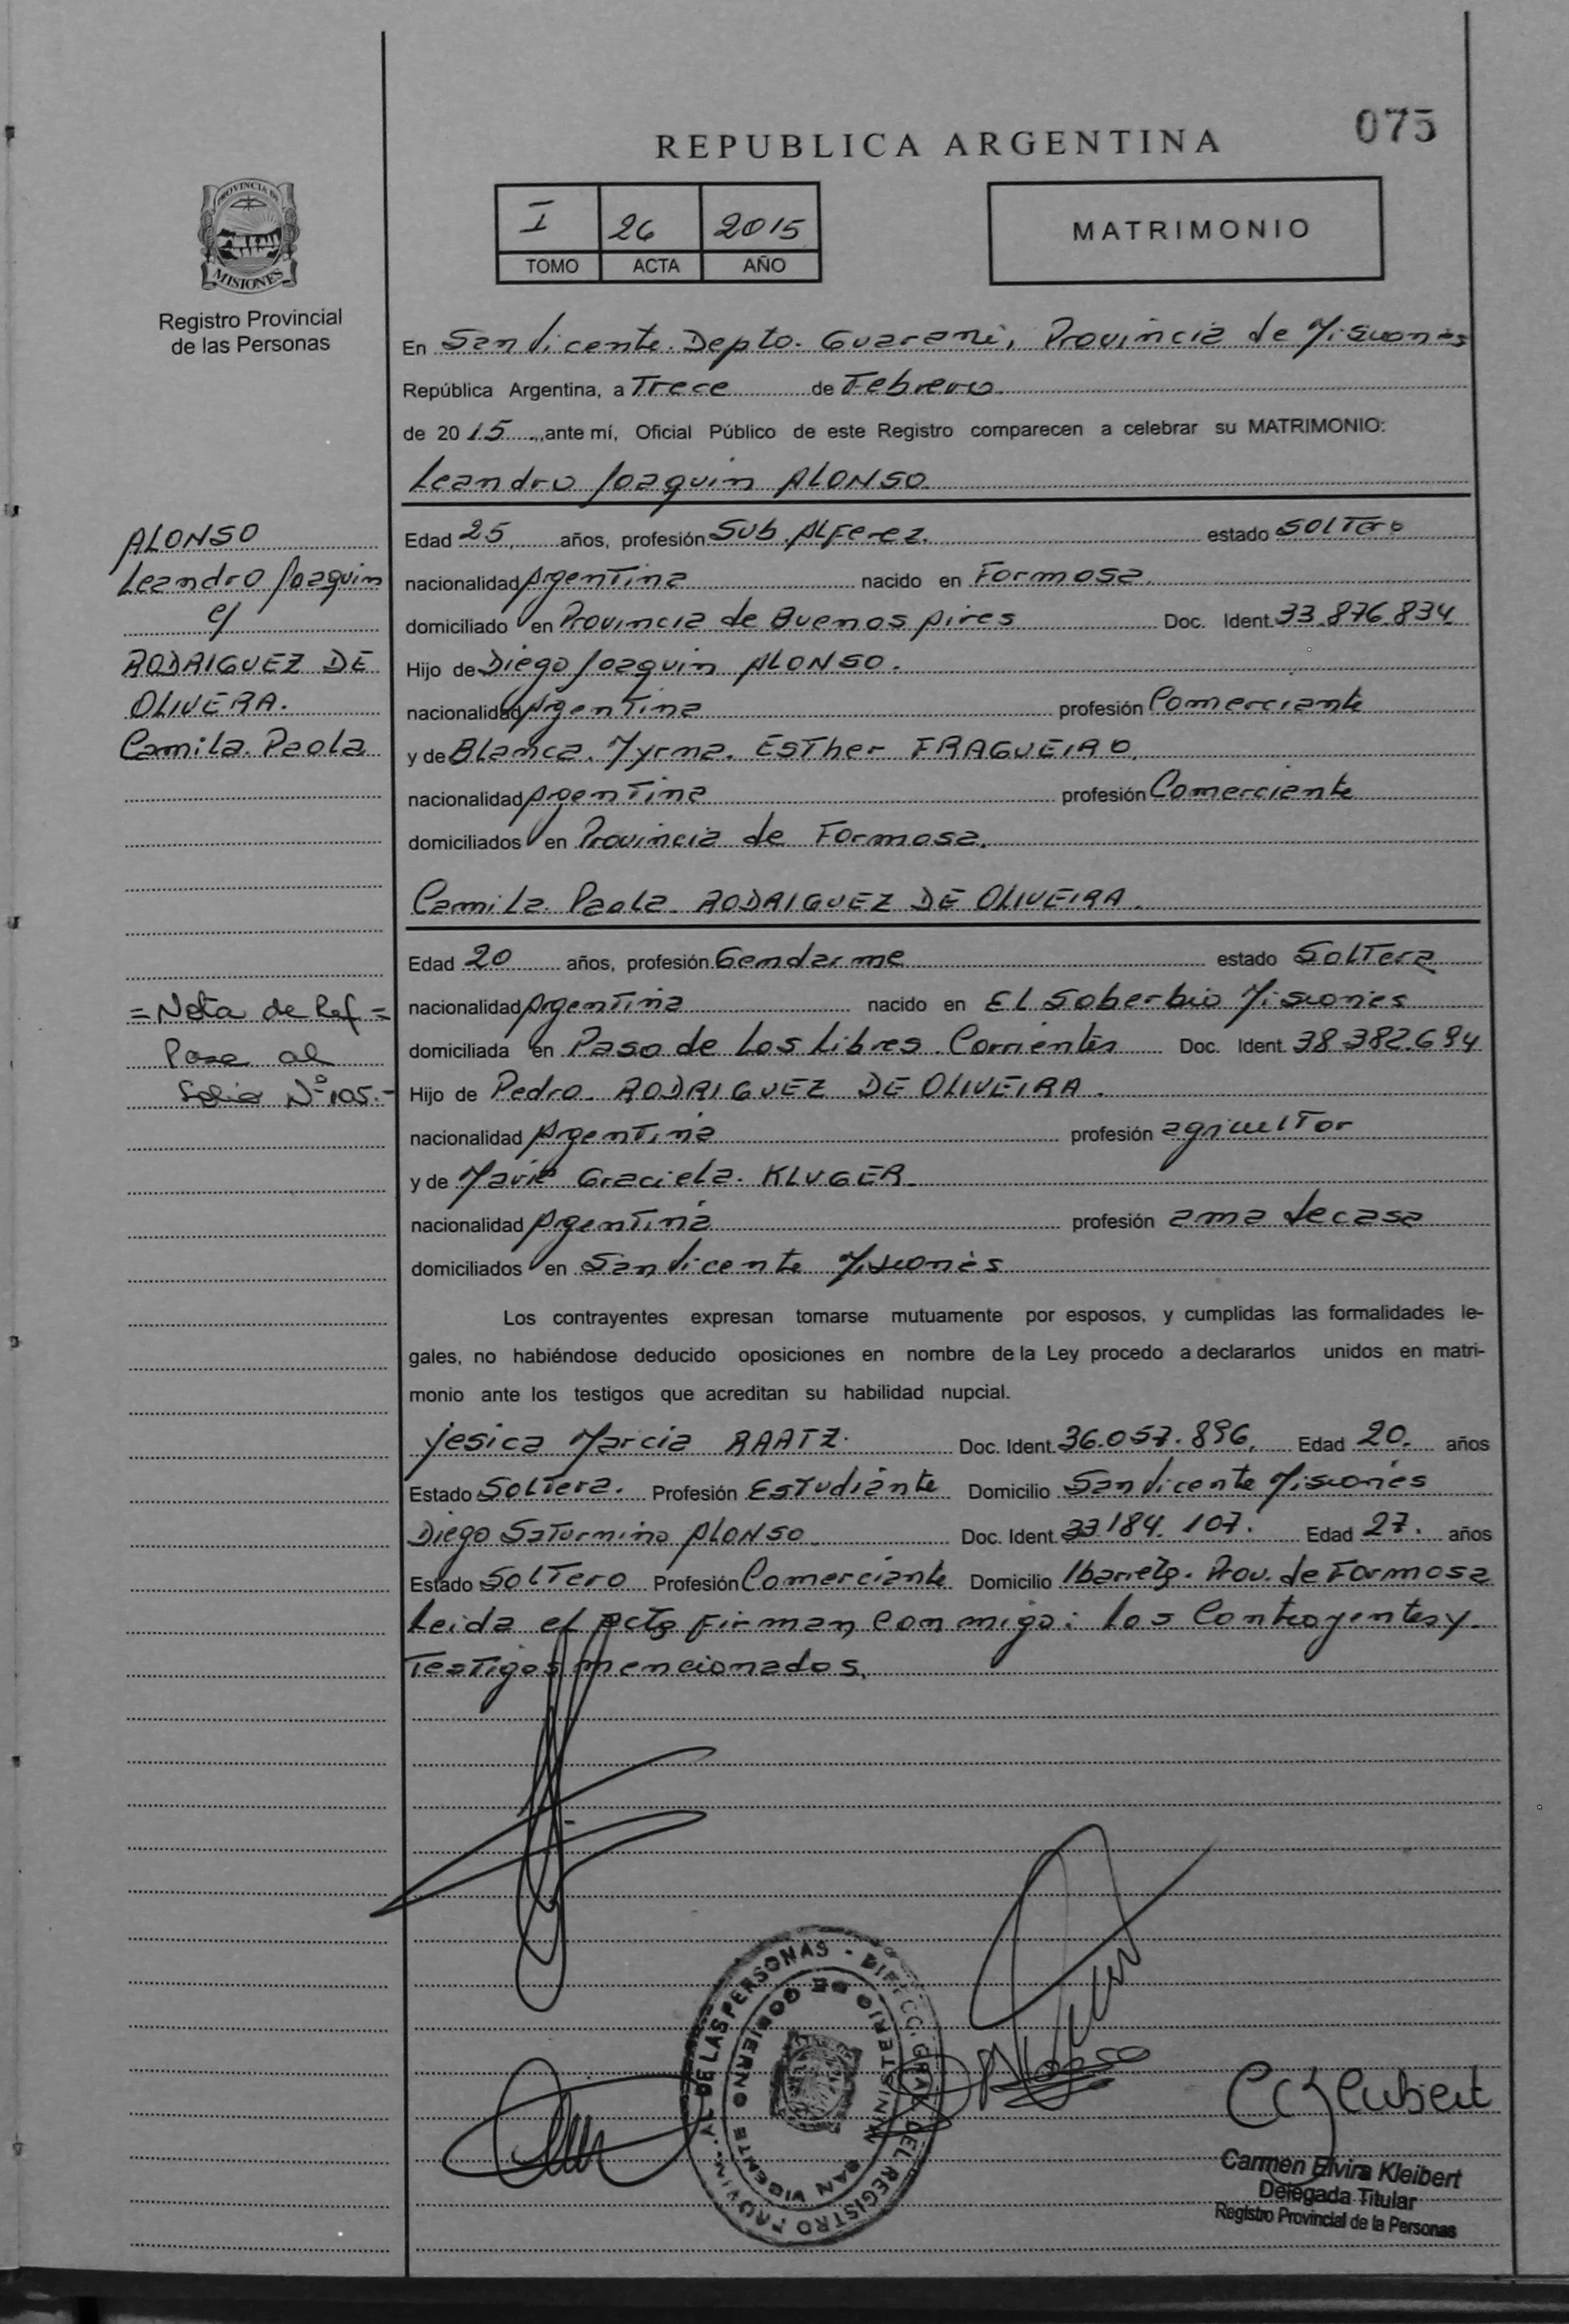 075
REPUBLICA ARGENTINA
PROVINCIA DE
MISIONES
Registro Provincial
de las Personas
I 26 2015
TOMO ACTA AÑO
MATRIMONIO
En San Vicente. Depto. Guarani, Provincia de Misiones
República Argentina, a Trece de Febrero.
de 2015, ante mí, Oficial Público de este Registro comparecen a celebrar su MATRIMONIO:
Leandro Joaquin ALONSO
ALONSO
Leandro Joaquin
c/
RODRIGUEZ DE
OLIVERA.
Camila. Paola
= Nota de Ref =
Pase al
Folio Nº 105.-
Edad 25, años, profesión Sub. ALFerez. estado SOLTero
nacionalidad Argentina nacido en Formosa.
domiciliado en Provincia de Buenos Aires Doc. Ident. 33.876.834
Hijo de Diego Joaquin ALONSO.
nacionalidad Argentina profesión Comerciante
y de Blanca. Myrna. ESTher FRAGUEIRO.
nacionalidad Argentina profesión Comerciante
domiciliados en Provincia de Formosa.
Camila. Paola. RODRIGUEZ DE OLIVEIRA.
Edad 20 años, profesión Gendarme estado SolTera
nacionalidad Argentina nacido en EL Soberbio Misiones
domiciliada en Paso de Los Libres. Corrientes Doc. Ident. 38.382.694
Hijo de Pedro. RODRIGUEZ DE OLIVEIRA.
nacionalidad Argentina profesión agricultor
y de Maria Graciela. KLUGER.
nacionalidad Argentina profesión ama de casa
domiciliados en San Vicente Misiones
Los contrayentes expresan tomarse mutuamente por esposos, y cumplidas las formalidades le-
gales, no habiéndose deducido oposiciones en nombre de la Ley procedo a declararlos unidos en matri-
monio ante los testigos que acreditan su habilidad nupcial.
Yesica Marcia RAATZ. Doc. Ident. 36.057.896. Edad 20. años
Estado Soltera. Profesión Estudiante Domicilio San Vicente Misiones
Diego Saturnino ALONSO Doc. Ident. 33184.107. Edad 27. años
Estado SOLTero Profesión Comerciante Domicilio Ibarreta. Prov. de Formosa
Leida el Acta Firman conmigo: Los Contrayentes y
Testigos mencionados.
DIRECC. GRAL. DEL REGISTRO PROVINCIAL DE LAS PERSONAS
MINISTERIO DE GOBIERNO
SAN VICENTE
Alonso
Carmen Elvira Kleibert
Delegada Titular
Registro Provincial de la Personas